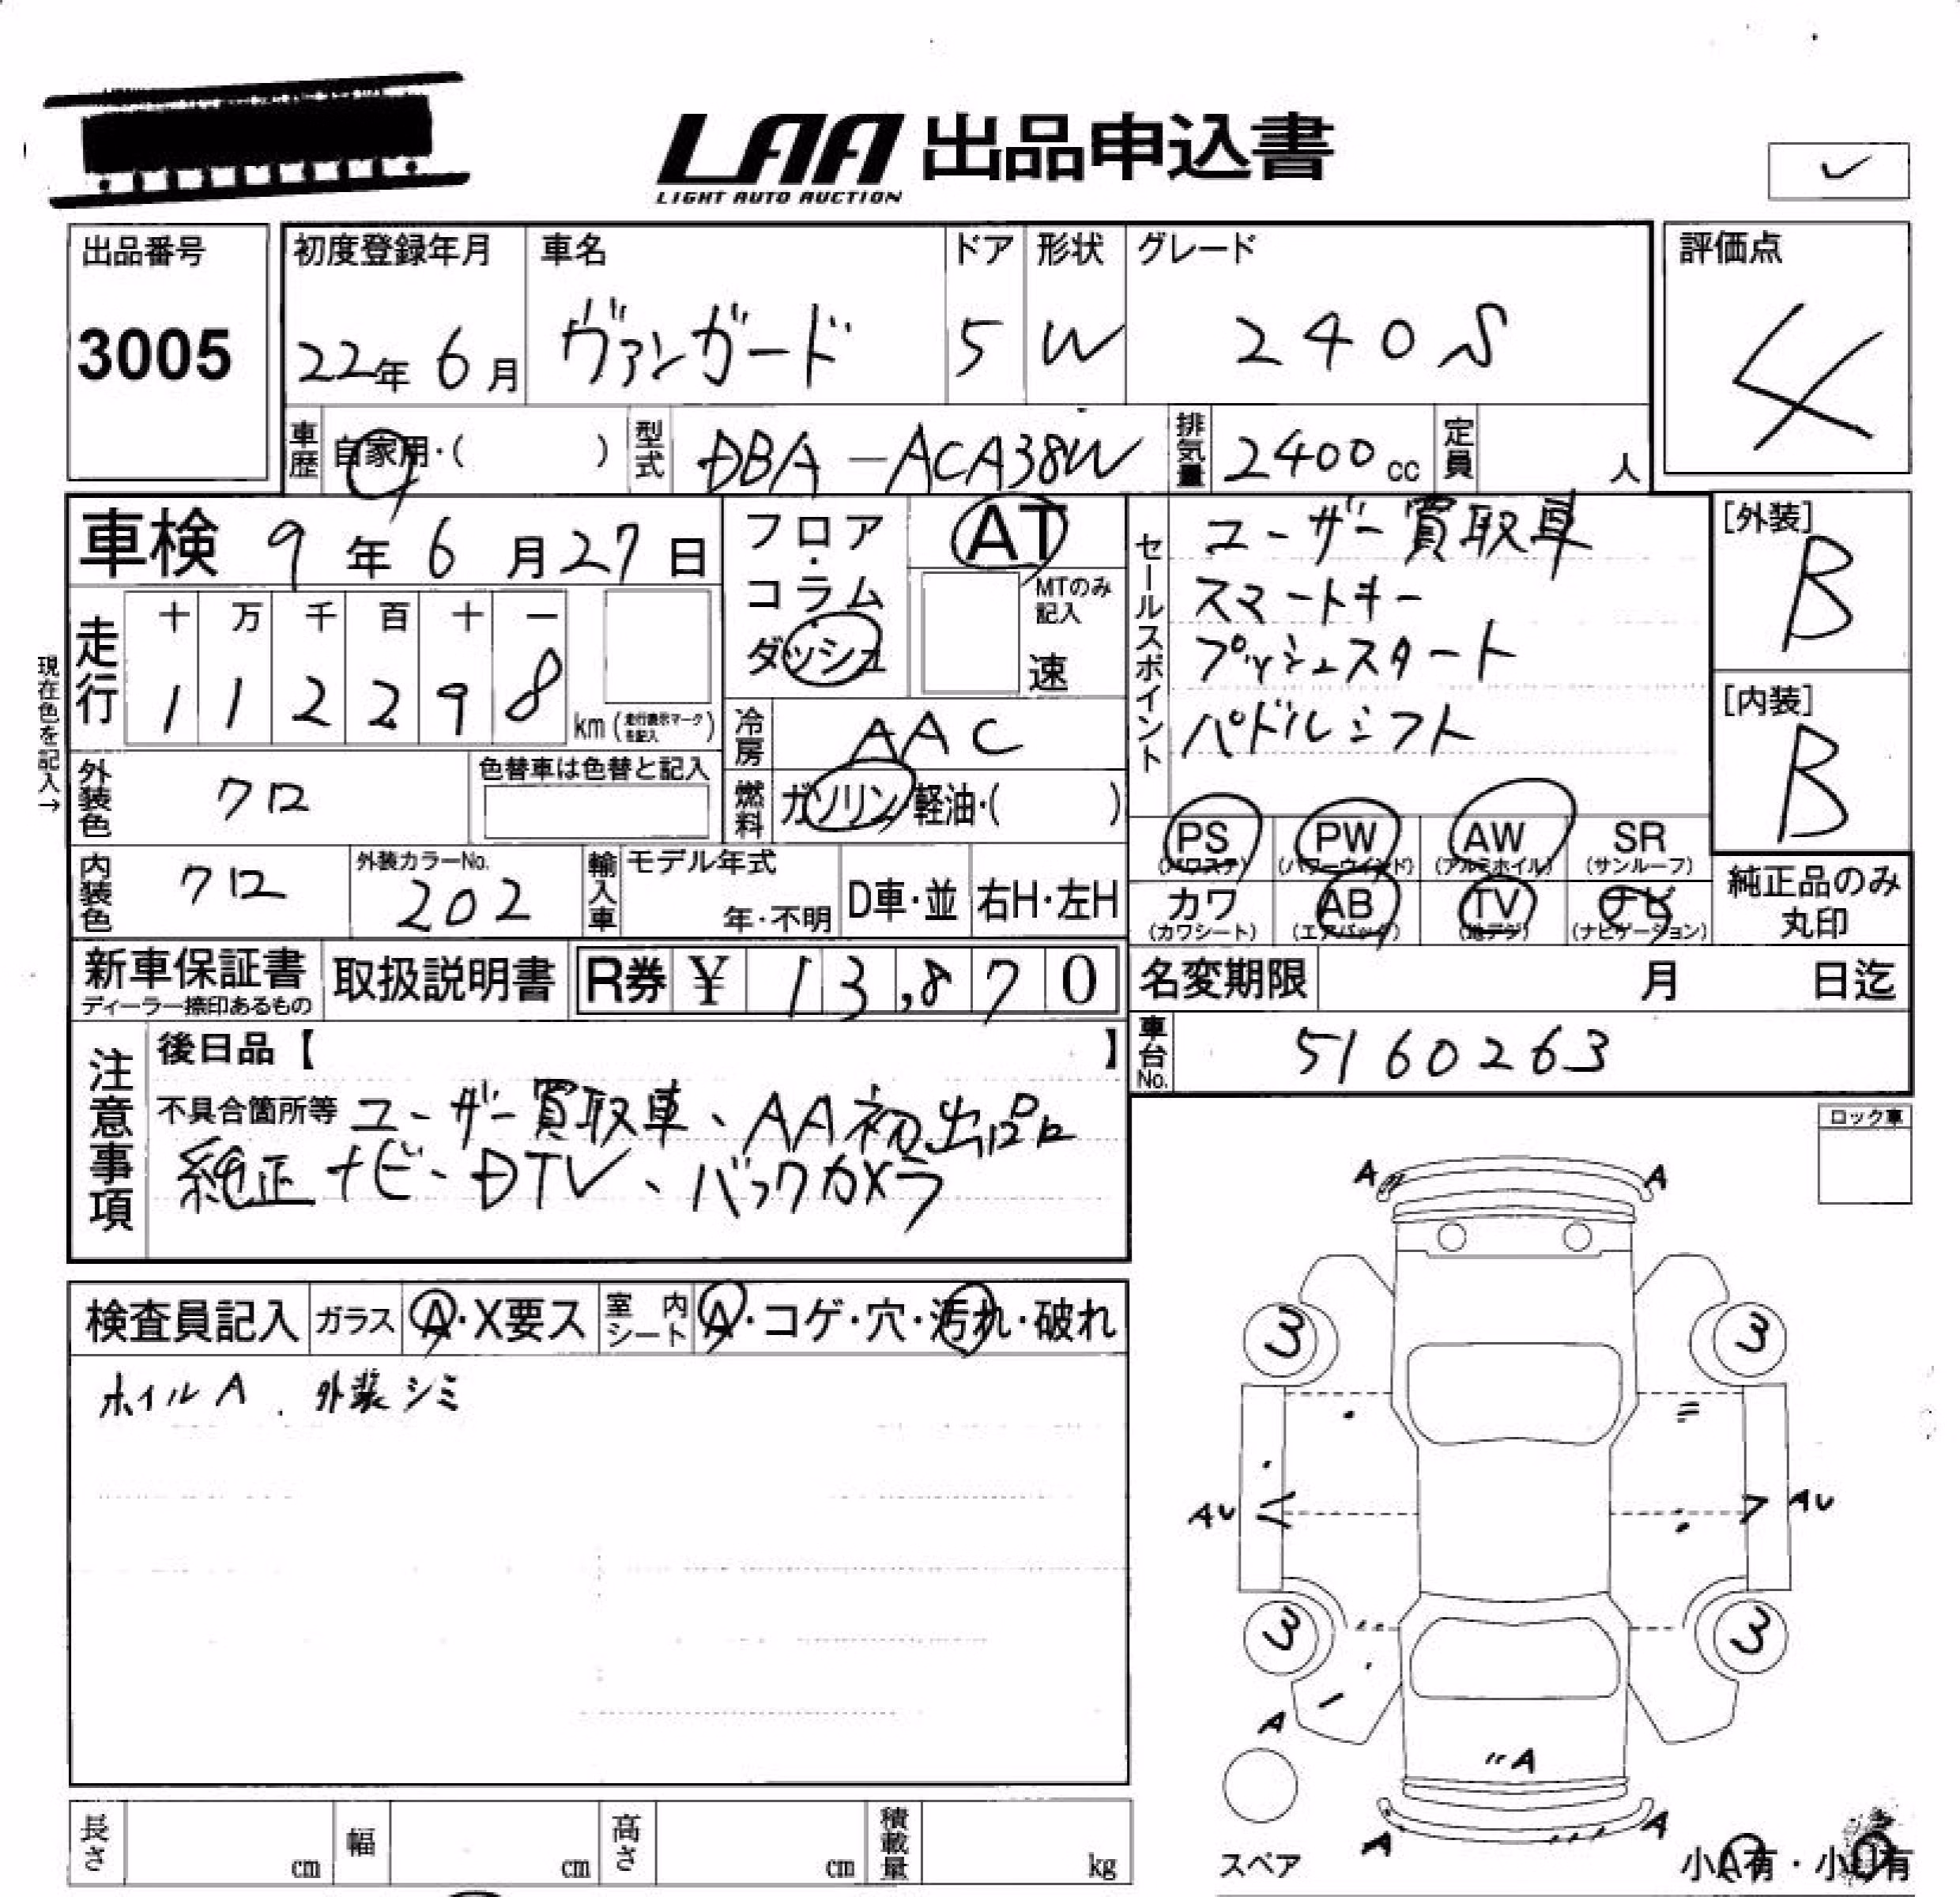 LAA 出品申込書
LIGHT AUTO AUCTION
出品番号
3005
初度登録年月
22年 6月
車名
ヴァンガード
ドア
5
形状
W
グレード
240S
評価点
4
車歴 自家用・( )
型式 DBA-ACA38W
排気量 2400cc
定員 人
車検 9年 6月27日
フロア・コラム・ダッシュ
AT
MTのみ記入
速
走行
十 万 千 百 十 一
1 1 2 2 9 8
km (走行表示マークを記入)
現在色を記入→
冷房 AAC
外装色 クロ
色替車は色替と記入
燃料 ガソリン・軽油・( )
内装色 クロ
外装カラーNo.
202
輸入車
モデル年式
年・不明
D車・並
右H・左H
セールスポイント
ユーザー買取車
スマートキー
プッシュスタート
パドルシフト
[外装]
B
[内装]
B
PS
(パワステ)
PW
(パワーウインド)
AW
(アルミホイル)
SR
(サンルーフ)
カワ
(カワシート)
AB
(エアバッグ)
TV
(地デジ)
ナビ
(ナビゲーション)
純正品のみ
丸印
新車保証書
ディーラー捺印あるもの
取扱説明書
R券 ¥ 13,870
名変期限 月 日迄
車台No. 5160263
注意事項
後日品【 】
不具合箇所等 ユーザー買取車、AA初出品
純正ナビ、DTV、バックカメラ
ロック車
検査員記入
ガラス A・X要ス
室内シート A・コゲ・穴・汚れ・破れ
ホイルA、外装シミ
A A
3 3
AU AU
3 3
A
A
A A
スペア
小A有・小U有
長さ cm
幅 cm
高さ cm
積載量 kg